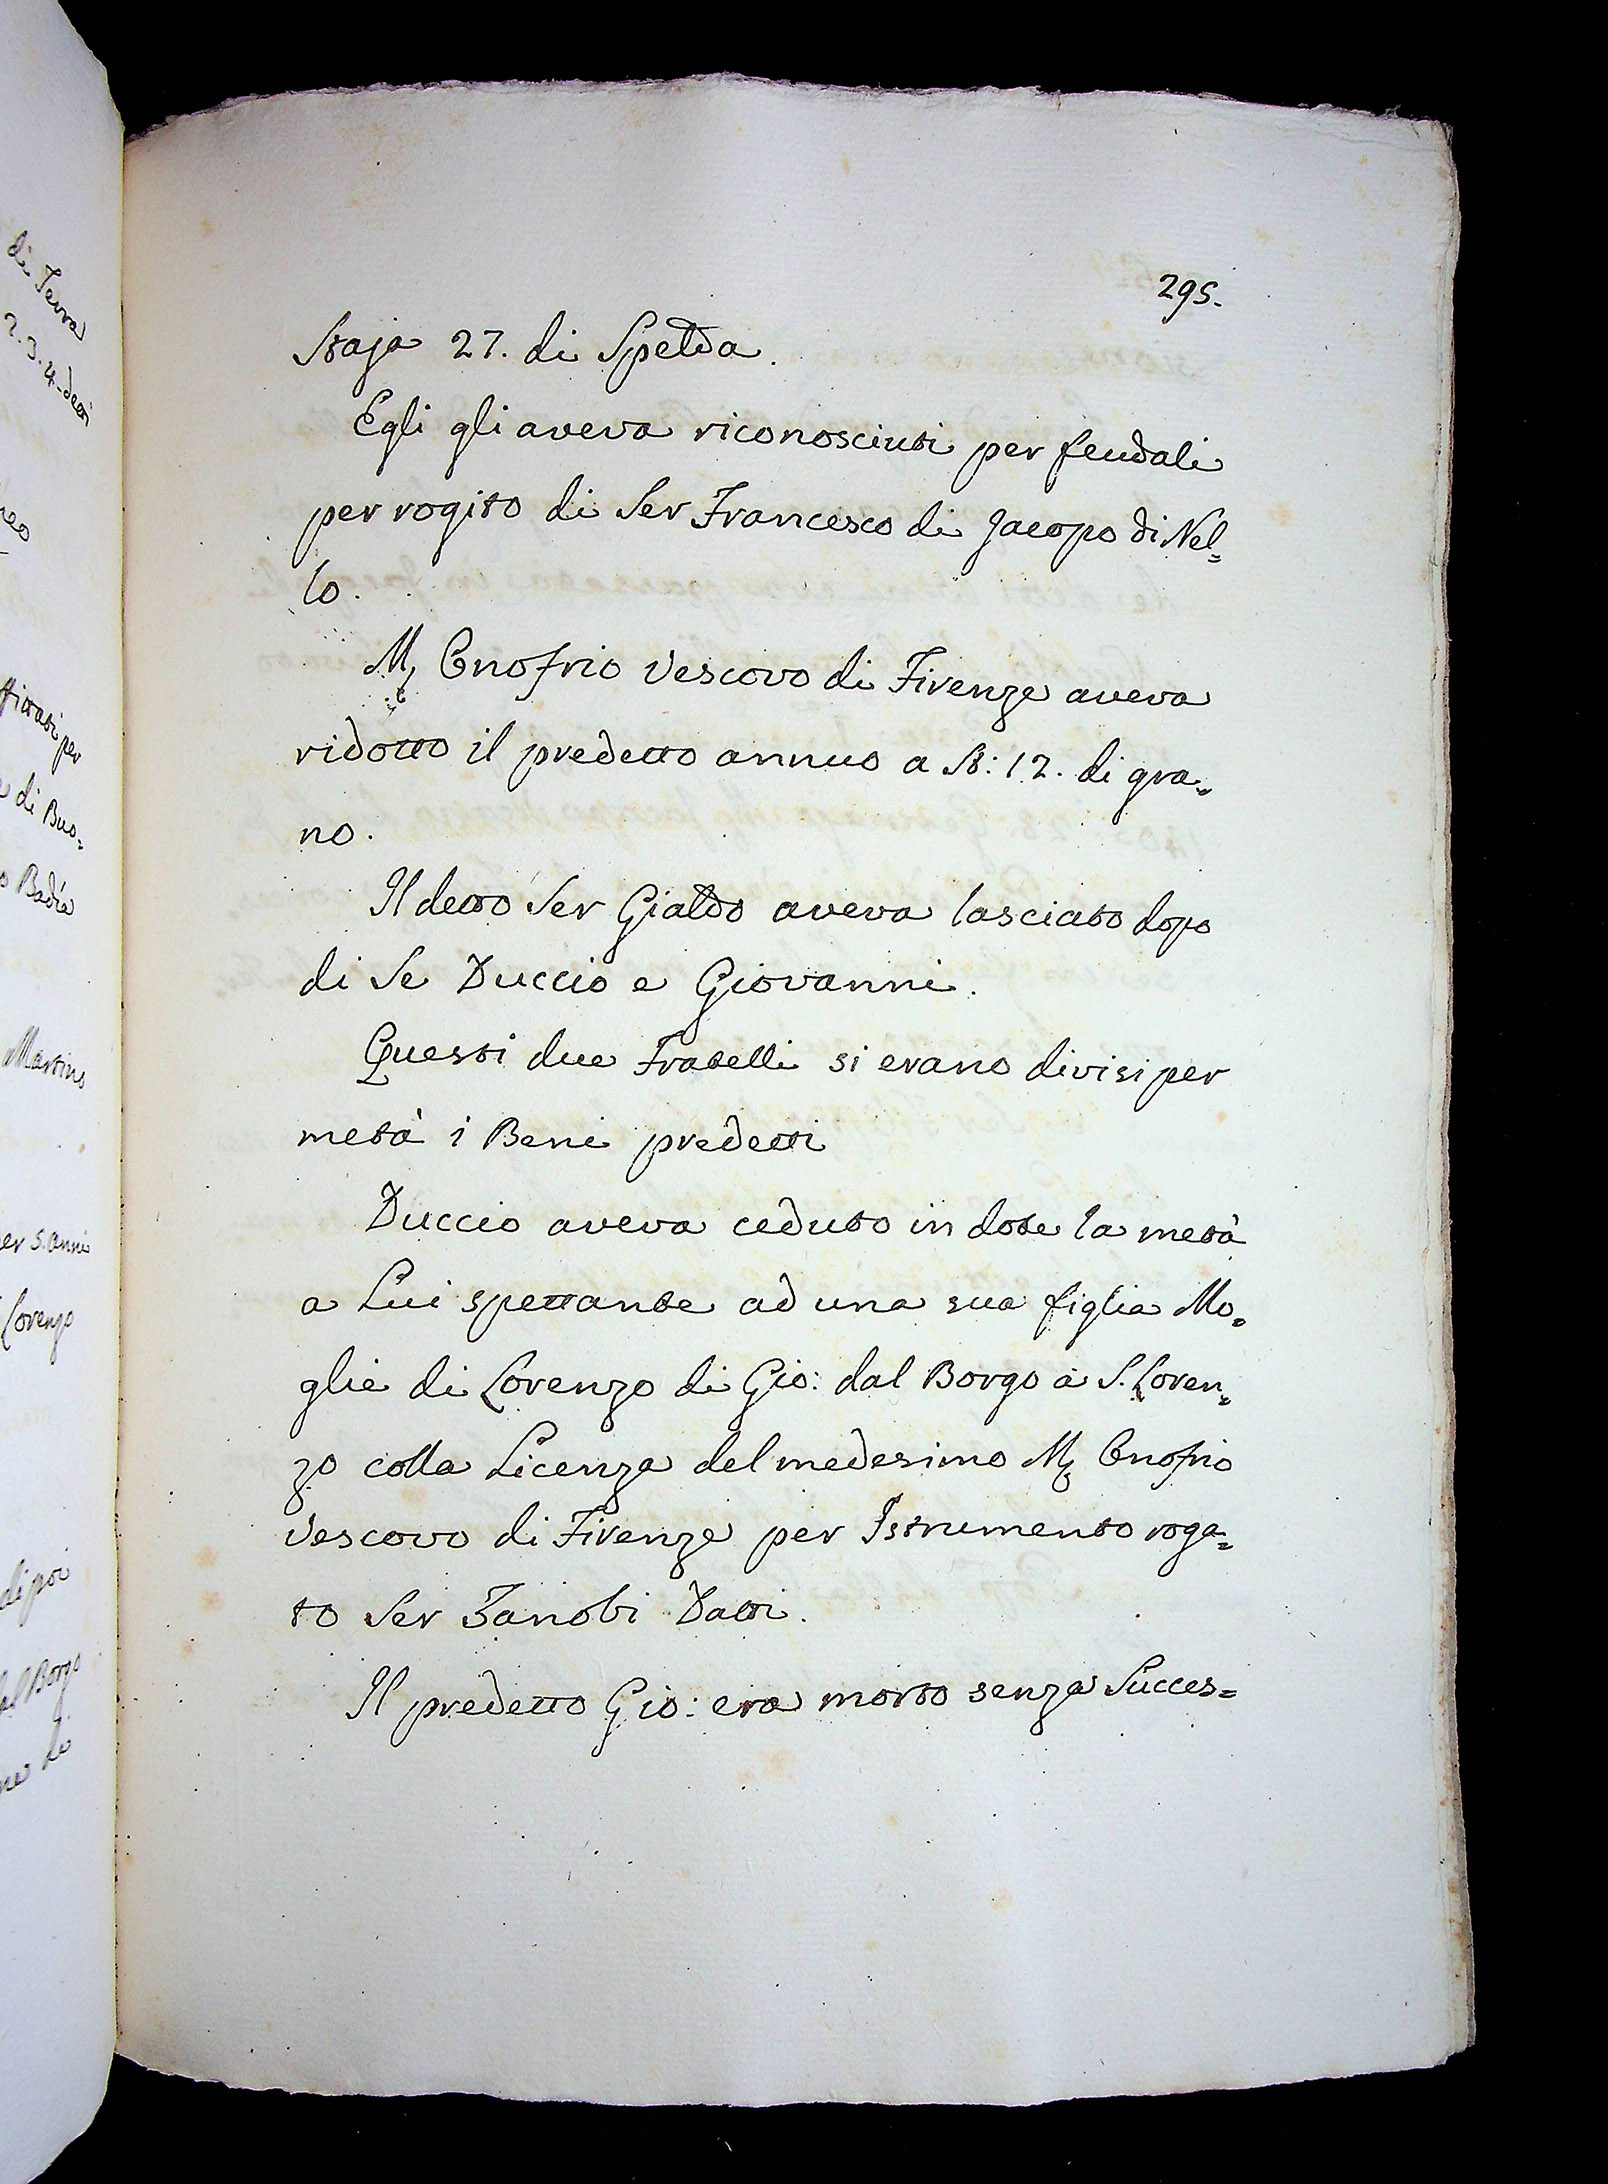 di Terra
2.3.4. detti
di Buo=
o Badia
Martino
er 5. anni
Lorenzo
di poi
al Borgo
ne di
295.
Staja 27. di Spelda.
Egli gli aveva riconosciuti per feudali
per rogito di Ser Francesco di Jacopo di Nel=
lo.
M. Onofrio Vescovo di Firenze aveva
ridotto il predetto annuo a St: 12. di gra=
no.
Il detto Ser Gialdo aveva lasciato dopo
di Se Duccio e Giovanni.
Questi due Fratelli si erano divisi per
metà i Beni predetti
Duccio aveva ceduto in dote la metà
a Lui spettante ad una sua figlia Mo=
glie di Lorenzo di Gio: dal Borgo a S. Loren=
zo colla Licenza del medesimo M. Onofrio
Vescovo di Firenze per Istrumento roga=
to Ser Zanobi Datti.
Il predetto Gio: era morto senza Succes=